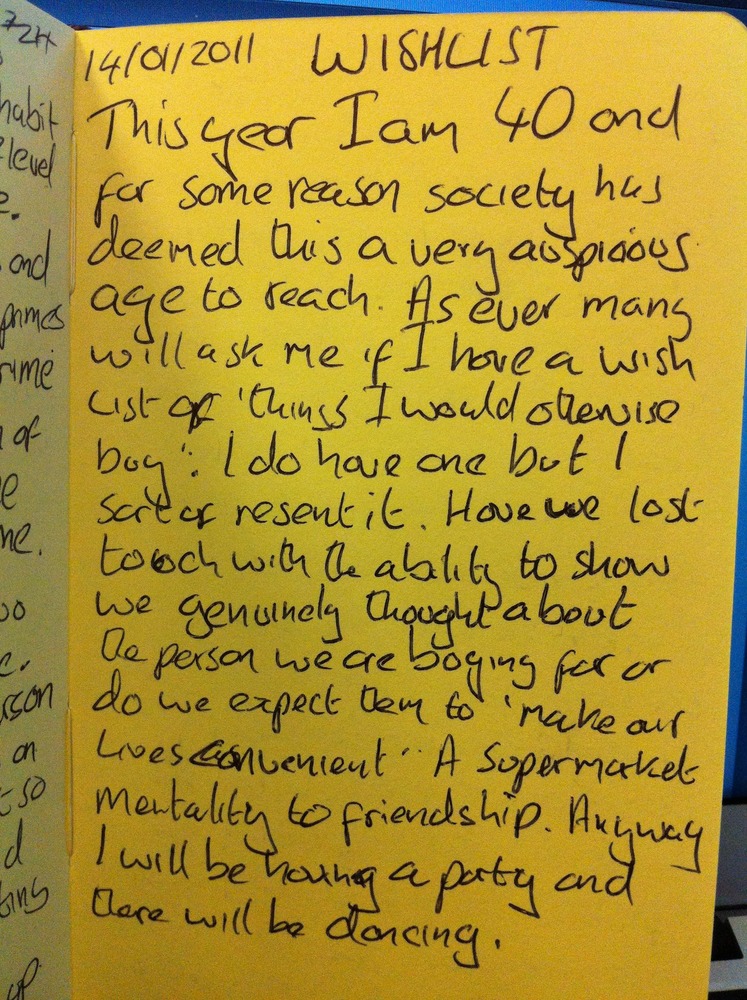 14/01/2011 WISHLIST
This year I am 40 and
for some reason society has
deemed this a very auspicious
age to reach. As ever many
will ask me if I have a wish
list of 'things I would otherwise
buy'. I do have one but I
sort of resent it. Have we lost
touch with the ability to show
we genuinely thought about
the person we are buying for or
do we expect them to 'make our
lives convenient'. A supermarket
mentality to friendship. Anyway
I will be having a party and
there will be dancing.
habit
level
and
of
me.
on
so
up